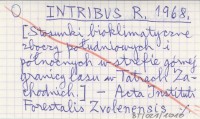 INTRIBUS R. 1968.
[Stosunki bioklimatyczne
zboczy południowych i
północnych w strefie górnej
granicy lasu w Tatrach Za-
chodnich.] – Acta Instituti
Forestalis Zvolenensis